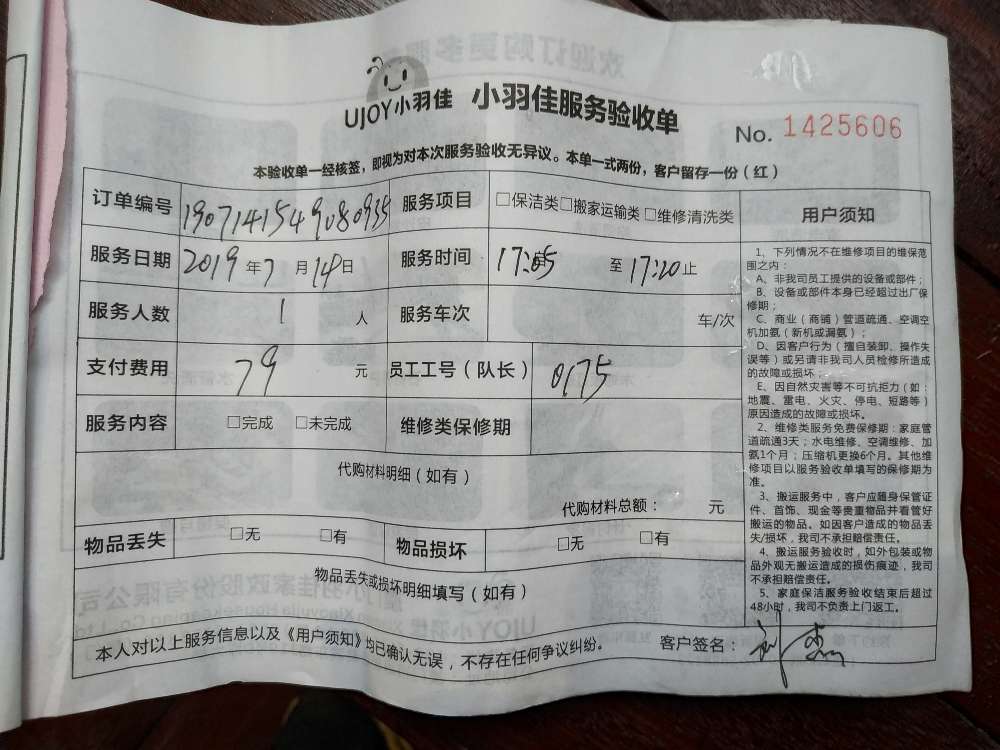 UJOY小羽佳 小羽佳服务验收单
No. 1425606
本验收单一经核签，即视为对本次服务验收无异议。本单一式两份，客户留存一份（红）
订单编号 1907141549080935 服务项目 □保洁类□搬家运输类□维修清洗类
服务日期 2019年7月14日 服务时间 17:05 至 17:20止
服务人数 1 人 服务车次 车/次
支付费用 79 元 员工工号（队长） 0175
服务内容 □完成 □未完成 维修类保修期
代购材料明细（如有）
代购材料总额： 元
物品丢失 □无 □有 物品损坏 □无 □有
物品丢失或损坏明细填写（如有）
用户须知
1、下列情况不在维修项目的维保范
围之内：
A、非我司员工提供的设备或部件；
B、设备或部件本身已经超过出厂保
修期；
C、商业（商铺）管道疏通、空调空
机加氨（新机或漏氨）；
D、因客户行为（擅自装卸、操作失
误等）或另请非我司人员检修所造成
的故障或损坏；
E、因自然灾害等不可抗拒力（如：
地震、雷电、火灾、停电、短路等）
原因造成的故障或损坏。
2、维修类服务免费保修期：家庭管
道疏通3天；水电维修、空调维修、加
氨1个月；压缩机更换6个月。其他维
修项目以服务验收单填写的保修期为
准。
3、搬运服务中，客户应随身保管证
件、首饰、现金等贵重物品并看管好
搬运的物品。如因客户造成的物品丢
失/损坏，我司不承担赔偿责任。
4、搬运服务验收时，如外包装或物
品外观无搬运造成的损伤痕迹，我司
不承担赔偿责任。
5、家庭保洁服务验收结束后超过
48小时，我司不负责上门返工。
本人对以上服务信息以及《用户须知》均已确认无误，不存在任何争议纠纷。 客户签名：